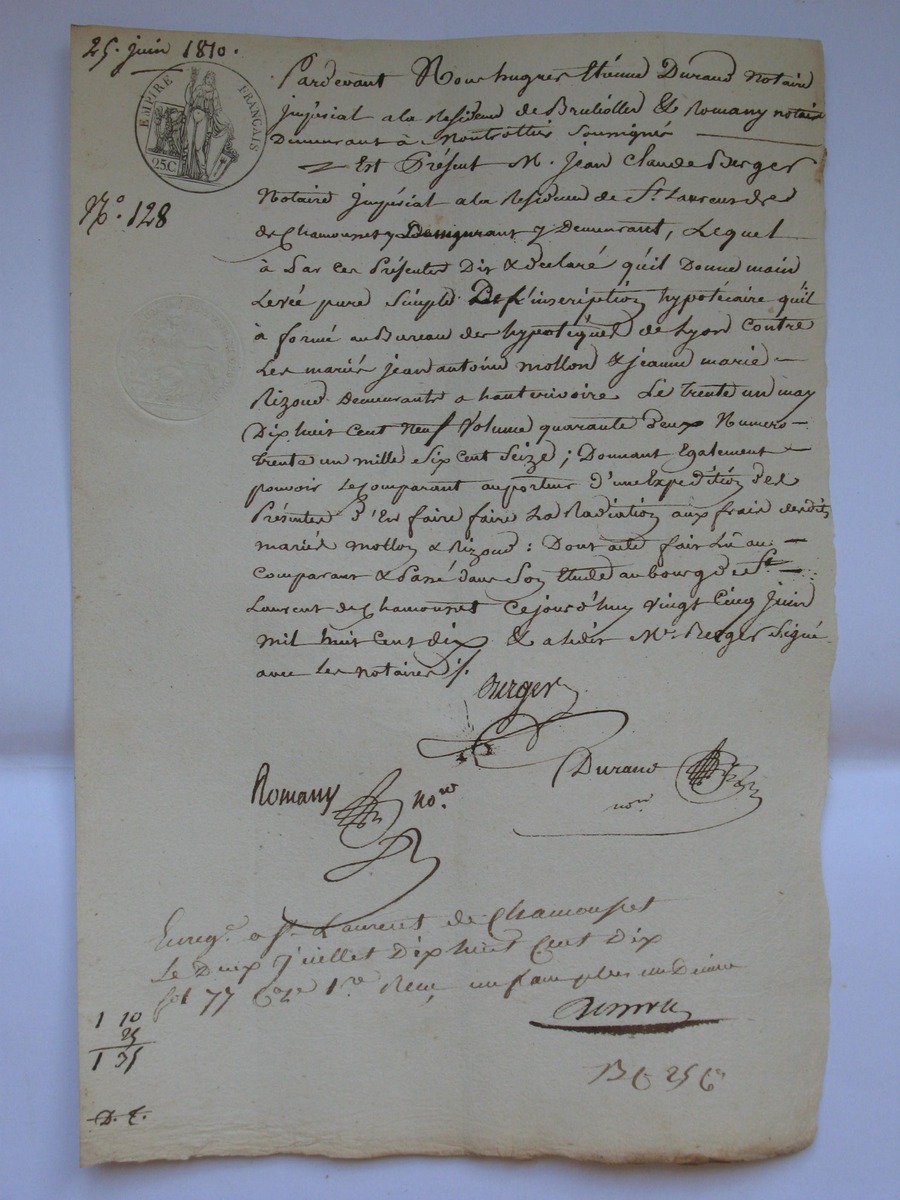 25. juin 1810.
EMPIRE FRANÇAIS
25C
N.° 128
Pardevant Nous hugues Etienne Durand Notaire
impérial a la Residence de Brulliolles & Romany notaire
Demeurant à Montrottier Soussignés
Est Présent M. jean Claude Berger
Notaire jmpérial a la Residence de St. Laurent de
de Chamousset y Demeurant, Lequel
à Par ces Présentes Dit & declaré qu'il Donne main
Levée pure Simple De l'inscription hypotécaire qu'il
à formé au Bureau des hypotéques de Lyon Contre
Les mariés jean antoine mollon & jeanne marie
Rizoud Demeurants a hauterivoire Le trente un may
Dix huit Cent Neuf Volume quarante Deux Numero
trente un mille Six Cent Seize ; Donnant Egalement
pouvoir Le Comparant au porteur d'une Expedition Des
Présentes D'En faire faire La Radiation aux frais desdits
mariés mollon & Rizoud : Dont acte fait Lû au
Comparant & Passé dans Son Etude au bourg de St
Laurent de Chamousset Cejourd'huy Vingt Cinq Juin
mil huit Cent dix & a ledit Mr. Berger Signé
avec Les notaires
Berger
Durand
nore
Romany no.re
Enreg.é a St Laurent de Chamousset
Le Deux Juillet Dix huit Cent Dix
fol 77 Cse 1re Recu un franc plus un Decime
1 10
25
1 35
B 6 25 Ce
D. t.